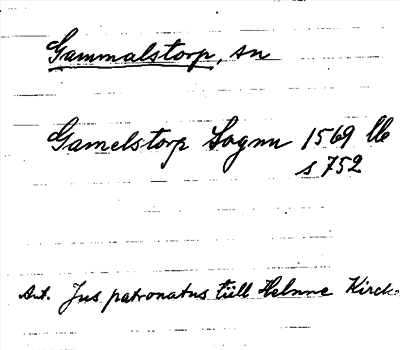 Gammalstorp, sn
Gamelstorp Sognn 1569 llb
s 752
Ant. Jus patronatus tiill Helnne Kirck-